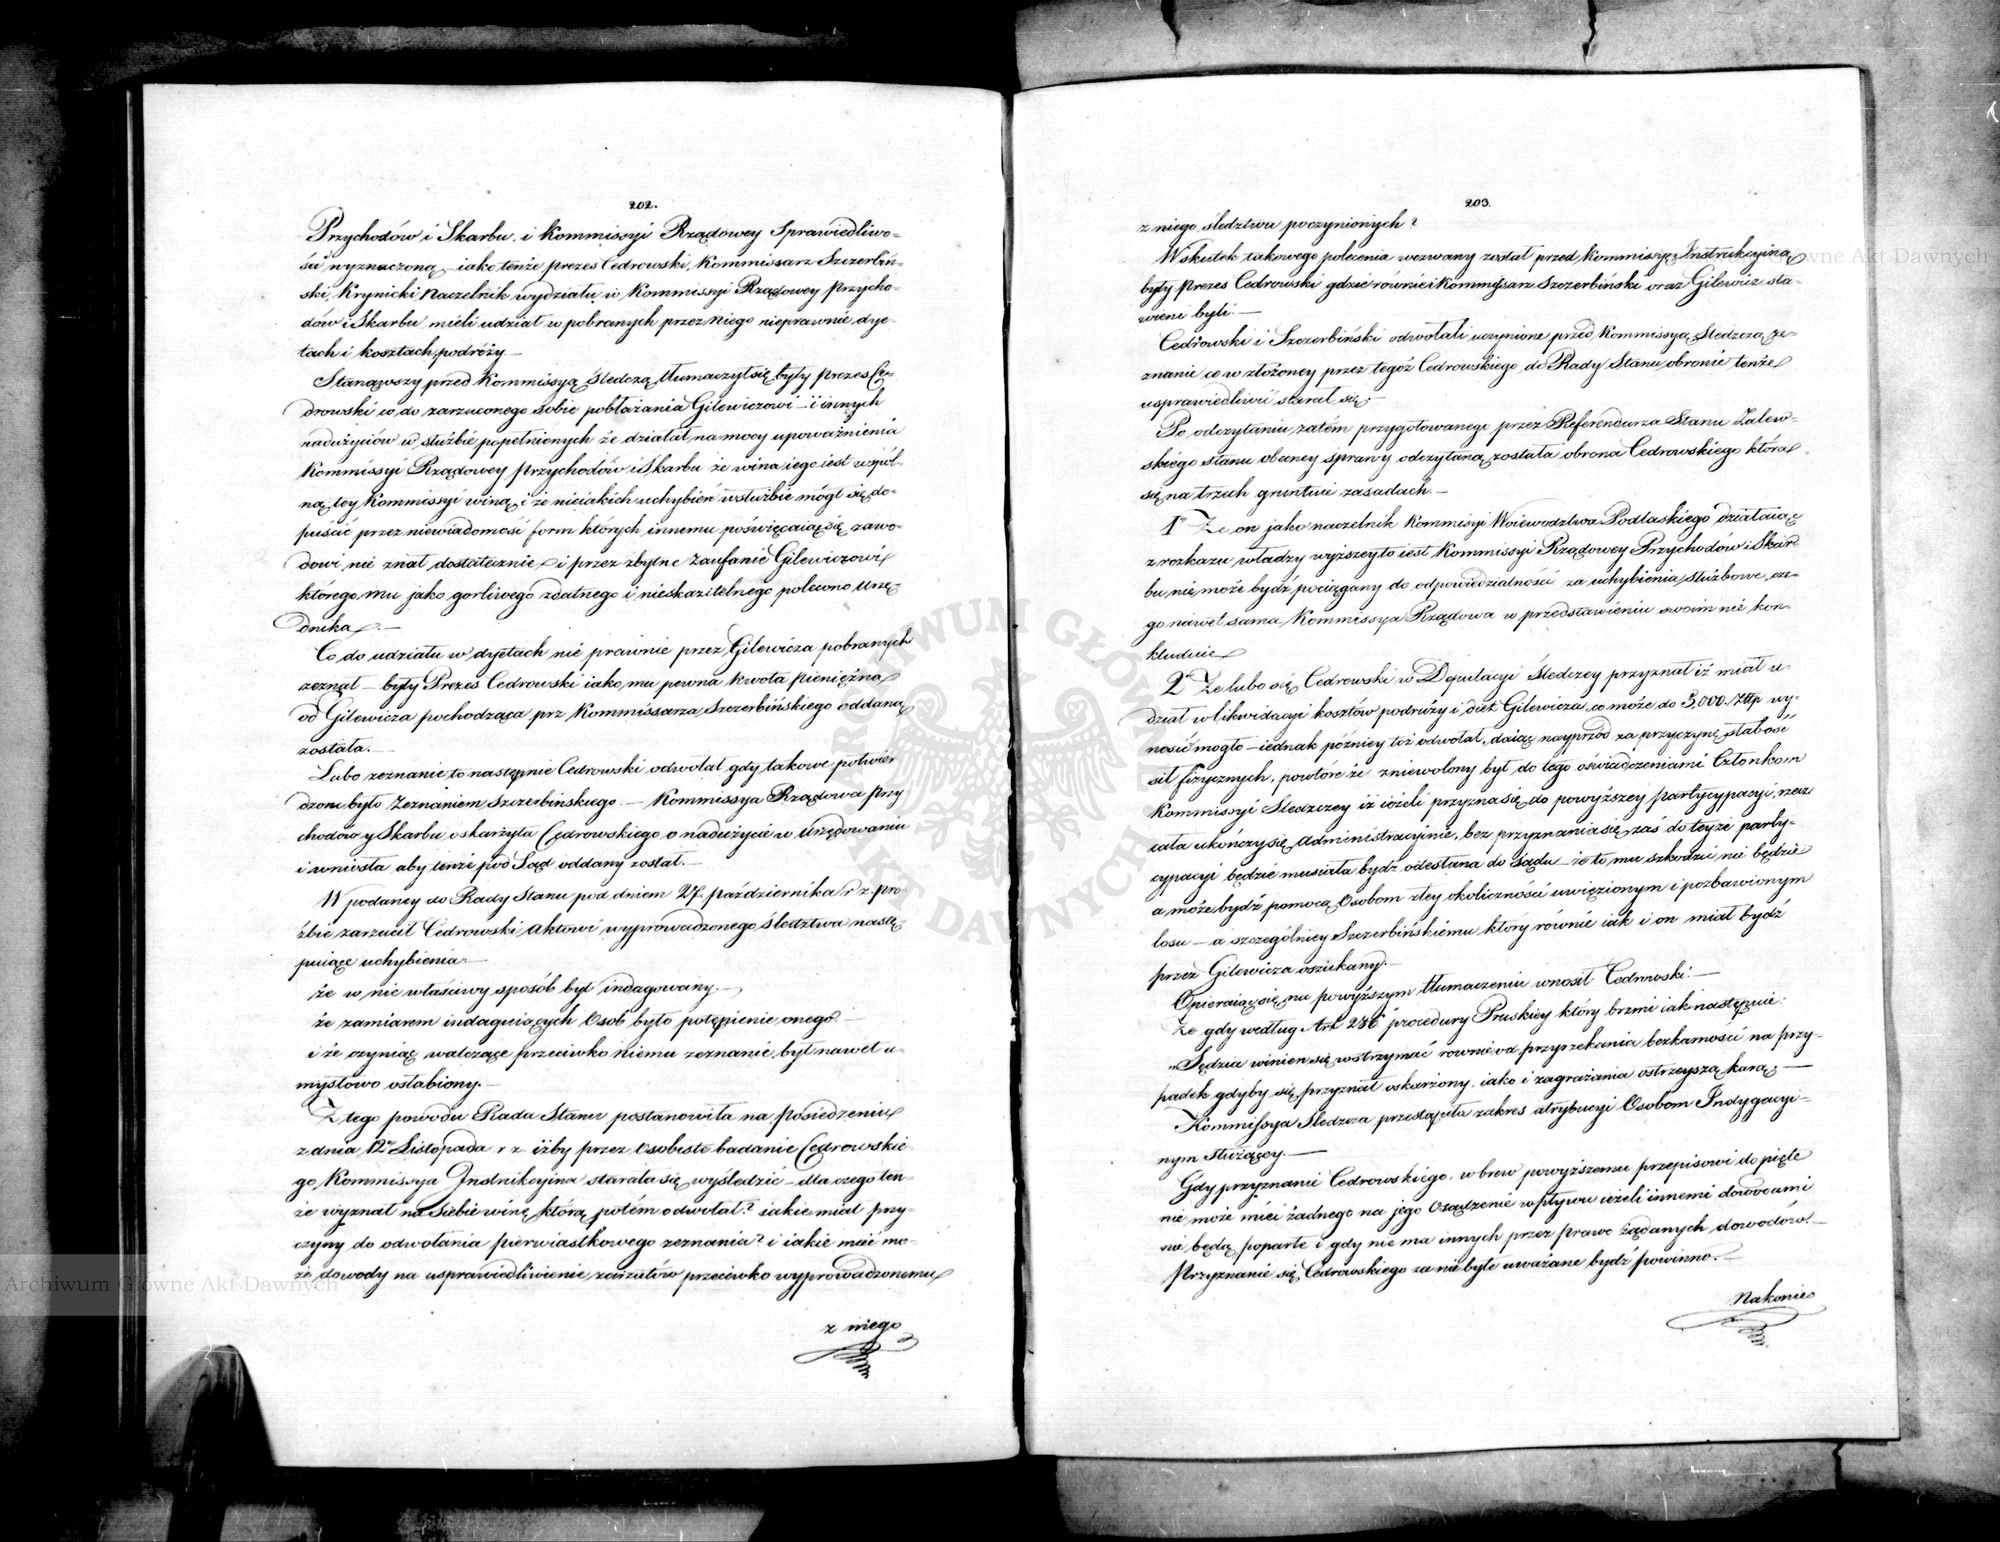 202.
Przychodów i Skarbu, i Kommissyi Rządowey Sprawiedliwo-
ści wyznaczoną – iako tenże prezes Cedrowski, Kommissarz Szczerbiń-
ski, Krynicki Naczelnik wydziału w Kommissyi Rządowey Przycho-
dów i Skarbu mieli udział w pobranych przez Niego nieprawnie dye-
tach i kosztach podróży –
Stanąwszy przed Kommissyą Śledczą tłumaczył się były prezes Ce-
drowski co do zarzuconego sobie pobłażania Gilewiczowi – i innych
nadużyciów w służbie popełnionych że działał na mocy upoważnienia
Kommissyi Rządowey Przychodów i Skarbu że wina iego iest wspól-
ną tey Kommissyi winą, i że nieiakich uchybień w służbie mógł się do-
puścić przez niewiadomość form których innemu poświęcaiąc się zawo-
dowi nie znał dostatecznie – i przez zbytne zaufanie Gilewiczowi
którego mu jako gorliwego zdatnego i nieskazitelnego polecono Urzę-
dnika. –
Co do udziału w dyetach nie prawnie przez Gilewicza pobranych
zeznał – były Prezes Cedrowski iako mu pewna kwota pieniężna
od Gilewicza pochodząca prz Kommissarza Szczerbińskiego oddaną
została. –
Lubo zeznanie to następnie Cedrowski odwołał gdy takowe potwier
dzone było Zeznaniem Szczerbinskiego. – Kommissya Rządowa Przy
chodów y Skarbu oskarżyła Cędrowskiego o nadużycie w Urzędowaniu
i wniosła aby tenże pod Sąd oddany został. –
W podaney do Rady Stanu pod dniem 27. października r z. pro
źbie zarzucił Cedrowski Aktowi wyprowadzonego Śledztwa nastę
puiące uchybienia –
że w nie właściwy sposób był indagowany. –
że zamiarem indaguiących Osob było potępienie onego. –
i że czyniąc walczące przeciwko niemu zeznanie, był nawet u-
mysłowo osłabiony. –
Z tego powodu Rada Stanu postanowiła na posiedzeniu
z dnia 12go Listopada r z. iżby przez osobiste badanie Cędrowskie-
go Kommissya Instrukcyina starała się wyśledzić – dla czego ten-
że wyznał na siebie winę którą potém odwołał? iakie miał przy-
czyny do odwołania pierwiastkowego zeznania? i iakie mieć mo-
że dowody na usprawiedliwienie zarzutów przeciwko wyprowadzonemu
z niego
203.
z niego śledztwu poczynionych?
W skutek takowego polecenia wezwany został przed Kommissyą Instrukcyiną
były Prezes Cedrowski gdzie również Kommissarz Szczerbiński oraz Gilewicz sta-
wieni byli. –
Cedrowski i Szczerbiński odwołali uczynione przed Kommissyą Śledczą ze-
znanie co w złożoney przez tegoż Cedrowskiego do Rady Stanu obronie tenże
usprawiedliwić starał się. –
Po odczytaniu zatém przygotowanego przez Referendarza Stanu Zalew-
skiego stanu obecney sprawy odczytaną została obrona Cedrowskiego która
się na trzech gruntuie zasadach. –
1o Że on jako naczelnik Kommisyi Woiewodztwa Podlaskiego działaiąc
z rozkazu władzy wyższey to iest Kommissyi Rządowey Przychodów i Skar
bu nie może bydź pociągany do odpowiedzialności za uchybienia służbowe, cze-
go nawet sama Kommissya Rządowa w przedstawieniu swoim nie kon-
kluduie
2o Że lubo się Cedrowski w Deputacyi Śledczey przyznał iż miał u-
dział w likwidacyi kosztów podróży i diet Gilewicza, co może do 3,000. Złłp wy-
nosić mogło – iednak późniey toż odwołał, daiąc nayprzód za przyczynę słabość
sił fizycznych, powtóre że zniewolony był do tego oświadczeniami Członkom
Kommissyi Śledczey iż ieżeli przyzna się do powyższey partycypacyi, rzecz
cała ukończy się Administracyinie, bez przyznania się zaś do teyże party-
cypacyi będzie musiała bydź odesłana do Sądu – że to mu szkodzić nie będzie
a może bydź pomocą Osobom z tey okoliczności uwięzionym i pozbawionym
losu – a szczególniey Szczerbińskiemu który równie iak i on miał bydź
przez Gilewicza oszukany. –
Opieraiąc się na powyższym tłumaczeniu wnosił Cedrowski: –
Że gdy według Art 286 procedury Pruskiey który brzmi iak następuie:
„Sędzia winien się wstrzymać rownie od przyrzekania bezkarności na przy-
padek gdyby się przyznał oskarżony, iako i zagrażania ostrzeyszą karą; –
Kommissya Śledcza przestąpiła zakres atrybucyi Osobom Indygacyi-
nym służący. –
Gdy przyznanie Cedrowskiego, wbrew powyższemu przepisowi dopięte
nie może mieć żadnego na jego Osądzenie wpływu ieżeli innemi dowodami
nie będą poparte i gdy nie ma innych przez prawo żądanych dowodów. –
Przyznanie się Cedrowskiego za nie byłe uważane bydź powinno. –
Nakoniec
Archiwum Główne Akt Dawnych
ARCHIWUM GŁÓWNE AKT DAWNYCH